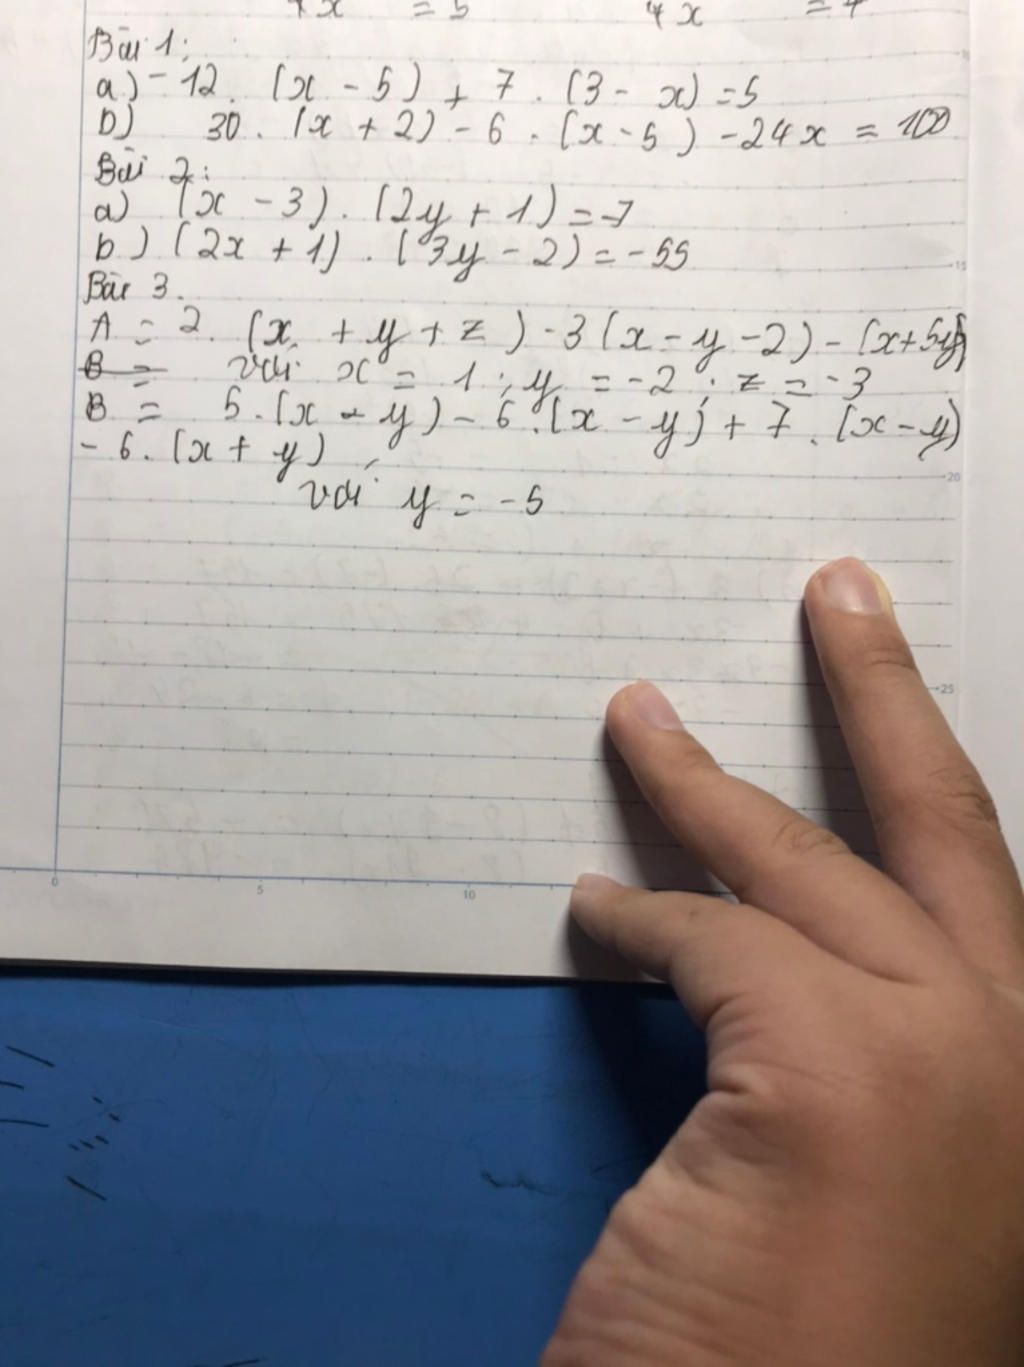 4x = 5 4x = 4
Bài 1:
a) -12 . (x - 5) + 7 . (3 - x) = 5
b) 30 . (x + 2) - 6 . (x - 5) - 24x = 100
Bài 2:
a) (x - 3) . (2y + 1) = -7
b) (2x + 1) . (3y - 2) = -55
Bài 3.
A = 2 . (x + y + z) - 3(x - y - 2) - (x + 5y)
B = với x = 1 ; y = -2 ; z = -3
B = 5 . (x - y) - 6 . (x - y) + 7 . (x - y)
- 6 . (x + y)
với y = -5
15
20
25
0 5 10